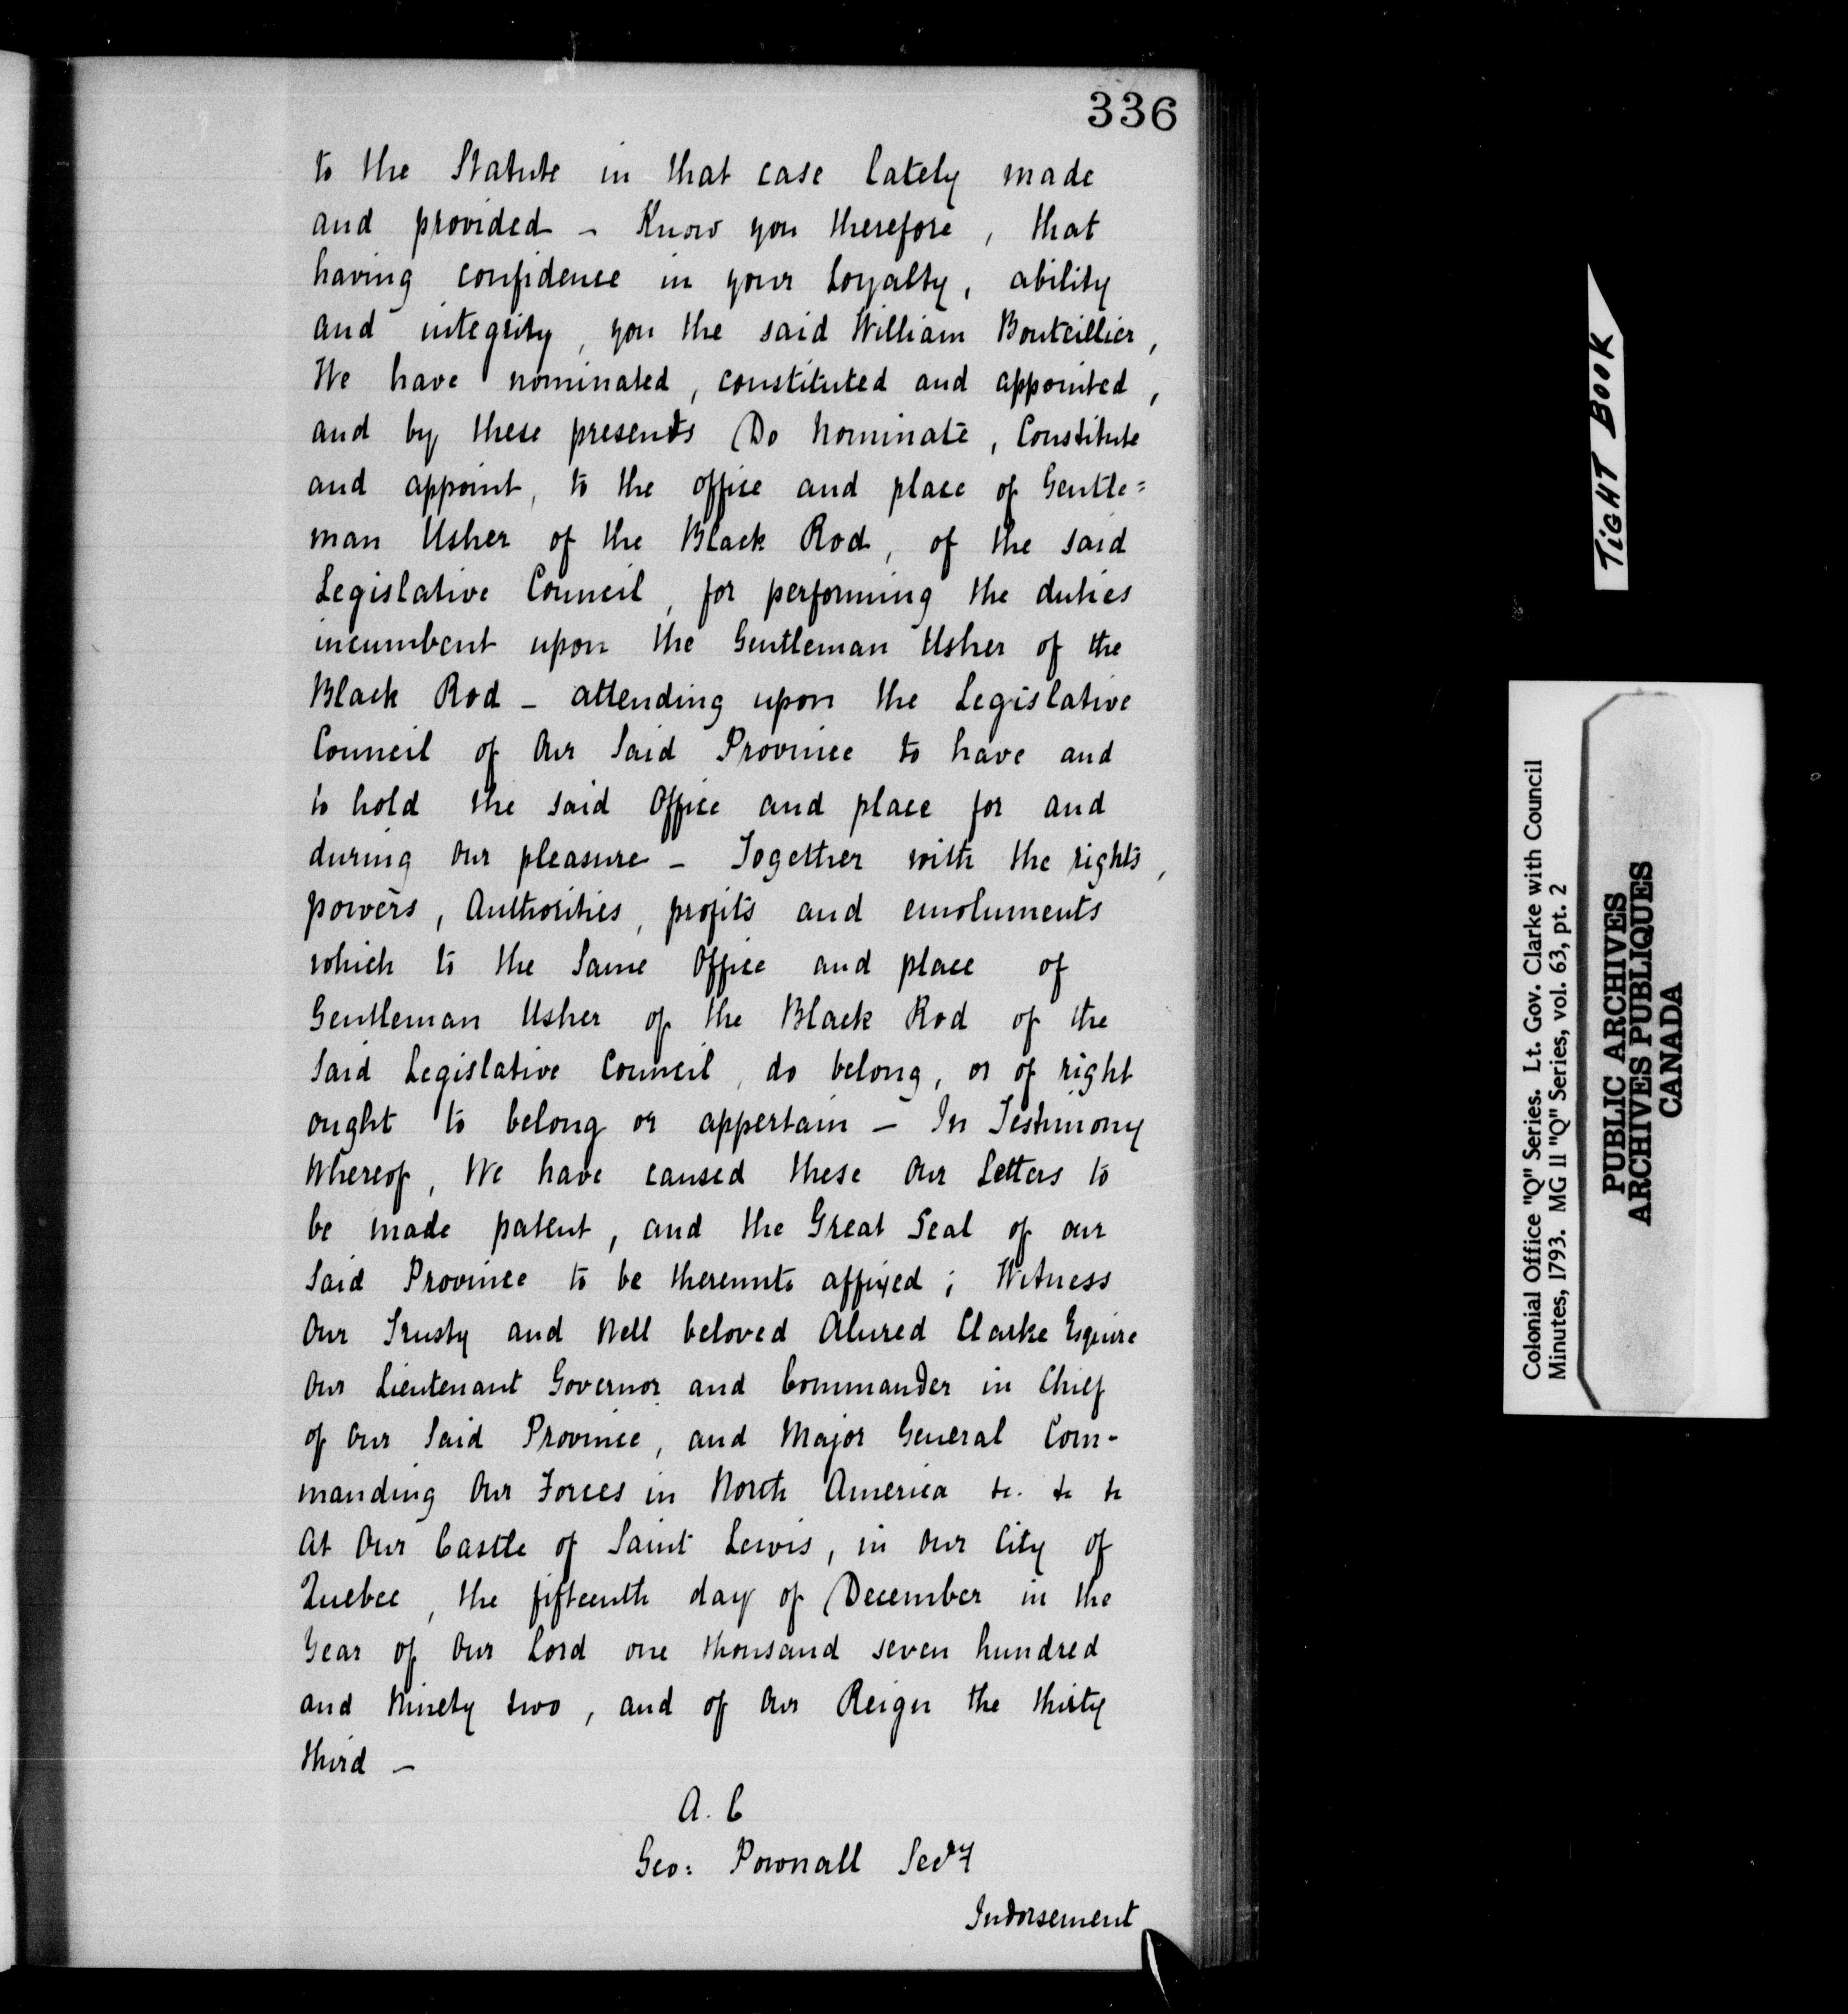 336
to the Statute in that case lately made
and provided - Know you therefore, that
having confidence in your Loyalty, ability
and integrity, you the said William Bouteillier,
We have nominated, constituted and appointed,
and by these presents Do Nominate, Constitute
and appoint, to the office and place of Gentle=
man Usher of the Black Rod, of the said
Legislative Council, for performing the duties
incumbent upon the Gentleman Usher of the
Black Rod - attending upon the Legislative
Council of Our Said Province to have and
to hold the said Office and place for and
during our pleasure - Together with the rights,
powers, Authorities, profits and emoluments
which to the Same Office and place of
Gentleman Usher of the Black Rod of the
Said Legislative Council, do belong, or of right
ought to belong or appertain - In Testimony
Whereof, We have caused these Our Letters to
be made patent, and the Great Seal of our
Said Province to be thereunto affixed; Witness
Our Trusty and Well beloved Alured Clarke Esquire
Our Lieutenant Governor and Commander in Chief
of Our Said Province, and Major General Com-
manding Our Forces in North America &c. &c &c
At Our Castle of Saint Lewis, in Our City of
Quebec, the fifteenth day of December in the
Year of Our Lord one thousand seven hundred
and Ninety two, and of Our Reign the thirty
third -
A. C
Geo: Pownall Secry
Indorsement
TIGHT BOOK
Colonial Office "Q" Series. Lt. Gov. Clarke with Council
Minutes, 1793. MG 11 "Q" Series, vol. 63, pt. 2
PUBLIC ARCHIVES
ARCHIVES PUBLIQUES
CANADA